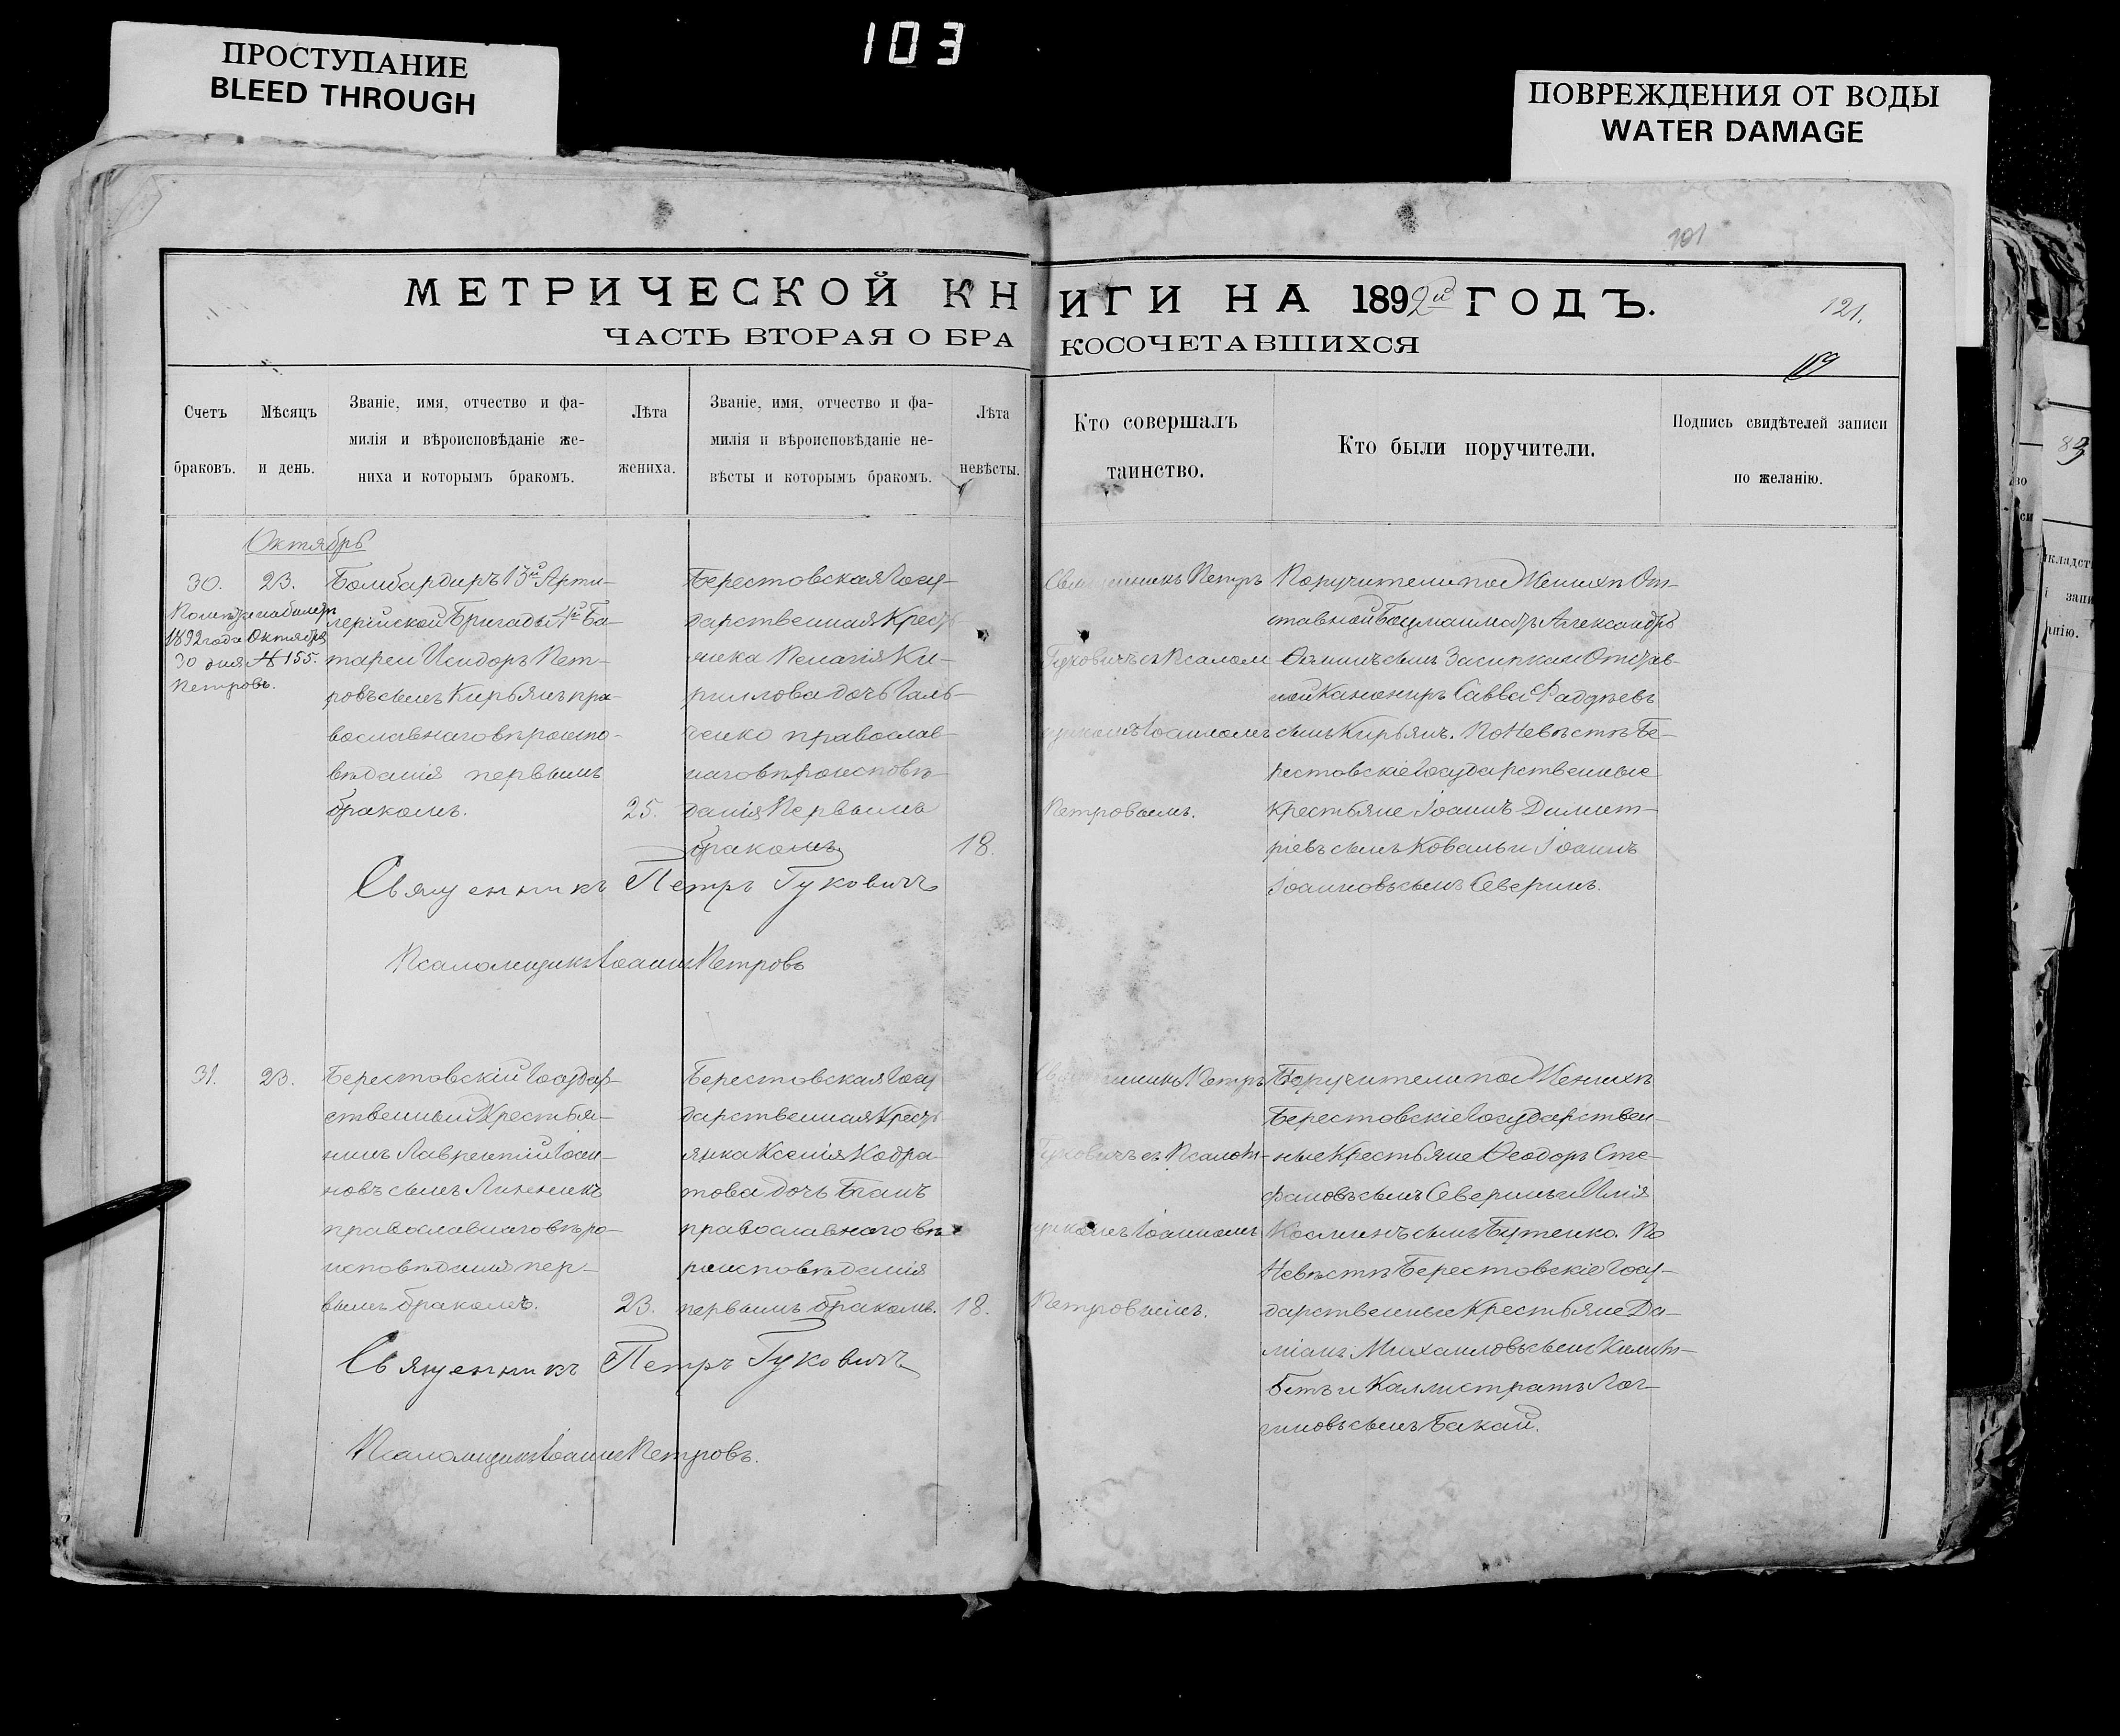 103
ПРОСТУПАНИЕ
BLEED THROUGH
ПОВРЕЖДЕНИЯ ОТ ВОДЫ
WATER DAMAGE
101
МЕТРИЧЕСКОЙ КНИГИ НА 1892й ГОДЪ.
121.
ЧАСТЬ ВТОРАЯ О БРАКОСОЧЕТАВШИХСЯ
Счетъ
браковъ.
Мѣсяцъ
и день.
Званіе, имя, отчество и фа-
милія и вѣроисповѣданіе же-
ниха и которымъ бракомъ.
Лѣта
жениха.
Званіе, имя, отчество и фа-
милія и вѣроисповѣданіе не-
вѣсты и которымъ бракомъ.
Лѣта
невѣсты.
Кто совершалъ
таинство.
Кто были поручители.
Подпись свидѣтелей записи
по желанію.
Октябрь
30.
1892 года Октября
30 дня № 155.
Петровъ.
23.
Бомбардиръ 13й Арти-
лерійской Бригады 4й Ба-
тареи Исидоръ Пет-
ровъ сынъ Кирьянъ пра-
вославнаго вѣроиспо-
вѣданія первымъ
бракомъ.
25.
Берестовская Госу-
дарственная Кресть
янка Пелагія Ки-
риллова дочь Галь-
ченко православ-
наго вѣроисповѣ-
данія Первымъ
бракомъ
18.
Священникъ Петръ
Гуковичъ съ Псалом
щикомъ Іоанномъ
Петровымъ.
Поручители по Женихѣ От-
ставной Боцманматъ Александръ
Ѳоминъ сынъ Засипкин Отстав-
ной Канониръ Савва Фаддѣевъ
сынъ Кирьянъ. По Невѣстѣ Бе-
рестовскіе Государственные
Крестьяне Іоаннъ Димит-
ріевъ сынъ Коваль и Іоаннъ
Іоанновъ сынъ Северинъ.
Священникъ Петръ Гуковичъ
Псаломщикъ Іоаннъ Петровъ
31.
23.
Берестовскій Государ-
ственный Крестья-
нинъ Лаврентій Іоан-
новъ сынъ Линникъ
православнаго вѣро-
исповѣданія пер-
вымъ бракомъ.
23.
Берестовская Госу
дарственная Кресть
янка Ксенія Кодра
това дочь Бганъ
православнаго вѣ-
роисповѣданія
первымъ бракомъ.
18.
Священникъ Петръ
Гуковичъ съ Псалом-
щикомъ Іоанномъ
Петровымъ.
Поручители по Женихѣ
Берестовскіе Государствен-
ные Крестьяне Ѳеодоръ Сте-
фановъ сынъ Северинъ и Илія
Косминъ сынъ Бутенко. По
Невѣстѣ Берестовскіе Госу-
дарственные Крестьяне Да-
міанъ Михаиловъ сынъ
и Каллистратъ Лог-
гиновъ сынъ Бакай.
Священникъ Петръ Гуковичъ
Псаломщикъ Іоаннъ Петровъ.